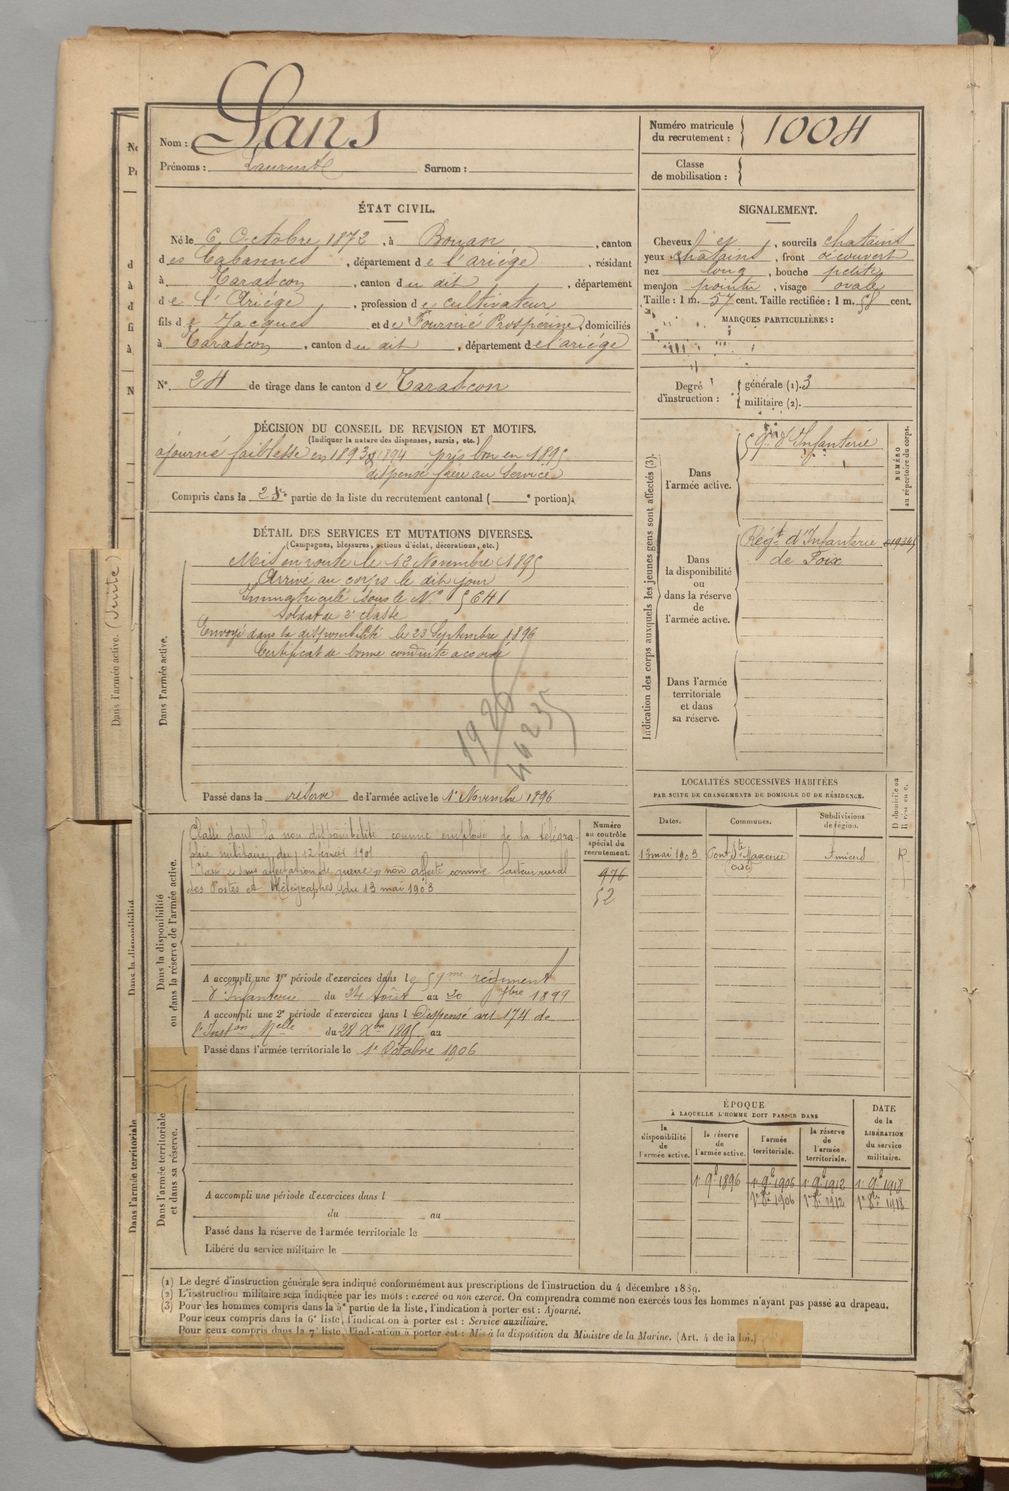 Nom : Sans
Prénoms : Laurent Surnom :
Numéro matricule du recrutement : 1004
Classe de mobilisation :
ÉTAT CIVIL.
Né le 6 Octobre 1872, à Bouan, canton
des Cabannes, département de l'ariége, résidant
à Tarascon, canton du dit, département
de l'Ariége, profession de cultivateur
fils de Jacques et de Fournié Prospérine, domiciliés
à Tarascon, canton du dit, département de l'ariége
N°. 24 de tirage dans le canton de Tarascon
SIGNALEMENT.
Cheveux et, sourcils chatains
yeux chatains, front découvert
nez long, bouche petite
menton pointu, visage ovale
Taille : 1 m. 57 cent. Taille rectifiée : 1 m. 58 cent.
MARQUES PARTICULIÈRES :
Degré d'instruction : générale (1). 3
militaire (2).
DÉCISION DU CONSEIL DE REVISION ET MOTIFS.
(Indiquer la nature des dispenses, sursis, etc.)
ajourné faiblesse en 1893 & 1894 pris bon en 1895
dispensé frère au service
Compris dans la 2e partie de la liste du recrutement cantonal ( e portion).
DÉTAIL DES SERVICES ET MUTATIONS DIVERSES.
(Campagnes, blessures, actions d'éclat, décorations, etc.)
Dans l'armée active.
Mis en route le 12 Novembre 1895
Arrivé au corps le dit jour
Immatriculé sous le N° 5641
Soldat de 2e classe
Envoyé dans la disponibilité le 23 Septembre 1896
Certificat de bonne conduite accordé
Passé dans la réserve de l'armée active le 1er Novembre 1896
Indication des corps auxquels les jeunes gens sont affectés (3).
NUMÉRO au répertoire du corps.
Dans l'armée active.
59e d'Infanterie
Dans la disponibilité ou dans la réserve de l'armée active.
Régt d'Infanterie
de Foix
Dans l'armée territoriale et dans sa réserve.
Dans la disponibilité ou dans la réserve de l'armée active.
Numéro au contrôle spécial du recrutement.
Classé dans la non disponibilité comme employé de la télégra-
phie militaire du 12
Classé non affecté comme facteur rural
des Postes et Télégraphes du 13 mai 1903
976
52
A accompli une 1re période d'exercices dans le 59me régiment
d'Infanterie du 24 Août au 20 7bre 1899
A accompli une 2e période d'exercices dans l Dispensé art 174 de
l'Inston Melle du 28 Xbre 1895 au
Passé dans l'armée territoriale le 1er Octobre 1906
LOCALITÉS SUCCESSIVES HABITÉES
PAR SUITE DE CHANGEMENTS DE DOMICILE OU DE RÉSIDENCE.
Dates. Communes. Subdivisions de région. D domicile ou R résidence.
13 mai 1903 Pont Ste Maxence (Oise) Amiens R
Dans l'armée territoriale et dans sa réserve.
A accompli une période d'exercices dans l
du au
Passé dans la réserve de l'armée territoriale le
Libéré du service militaire le
ÉPOQUE
À LAQUELLE L'HOMME DOIT PASSER DANS
la disponibilité de l'armée active. la réserve de l'armée active. l'armée territoriale. la réserve de l'armée territoriale. DATE de la LIBÉRATION du service militaire.
1er 9bre 1896 1er 9bre 1906 1er 9bre 1912 1er 9bre 1918
1er 8bre 1906 1er 8bre 1912 1er 8bre 1918
(1) Le degré d'instruction générale sera indiqué conformément aux prescriptions de l'instruction du 4 décembre 1889.
(2) L'instruction militaire sera indiquée par les mots : exercé ou non exercé. On comprendra comme non exercés tous les hommes n'ayant pas passé au drapeau.
(3) Pour les hommes compris dans la 4e partie de la liste, l'indication à porter est : Ajourné.
Pour ceux compris dans la 6e liste, l'indication à porter est : Service auxiliaire.
Pour ceux compris dans la 7e liste, l'indication à porter est : Mis à la disposition du Ministre de la Marine. (Art. 4 de la loi.)
Dans l'armée active. (Suite)
Dans la disponibilité
Dans l'armée territoriale